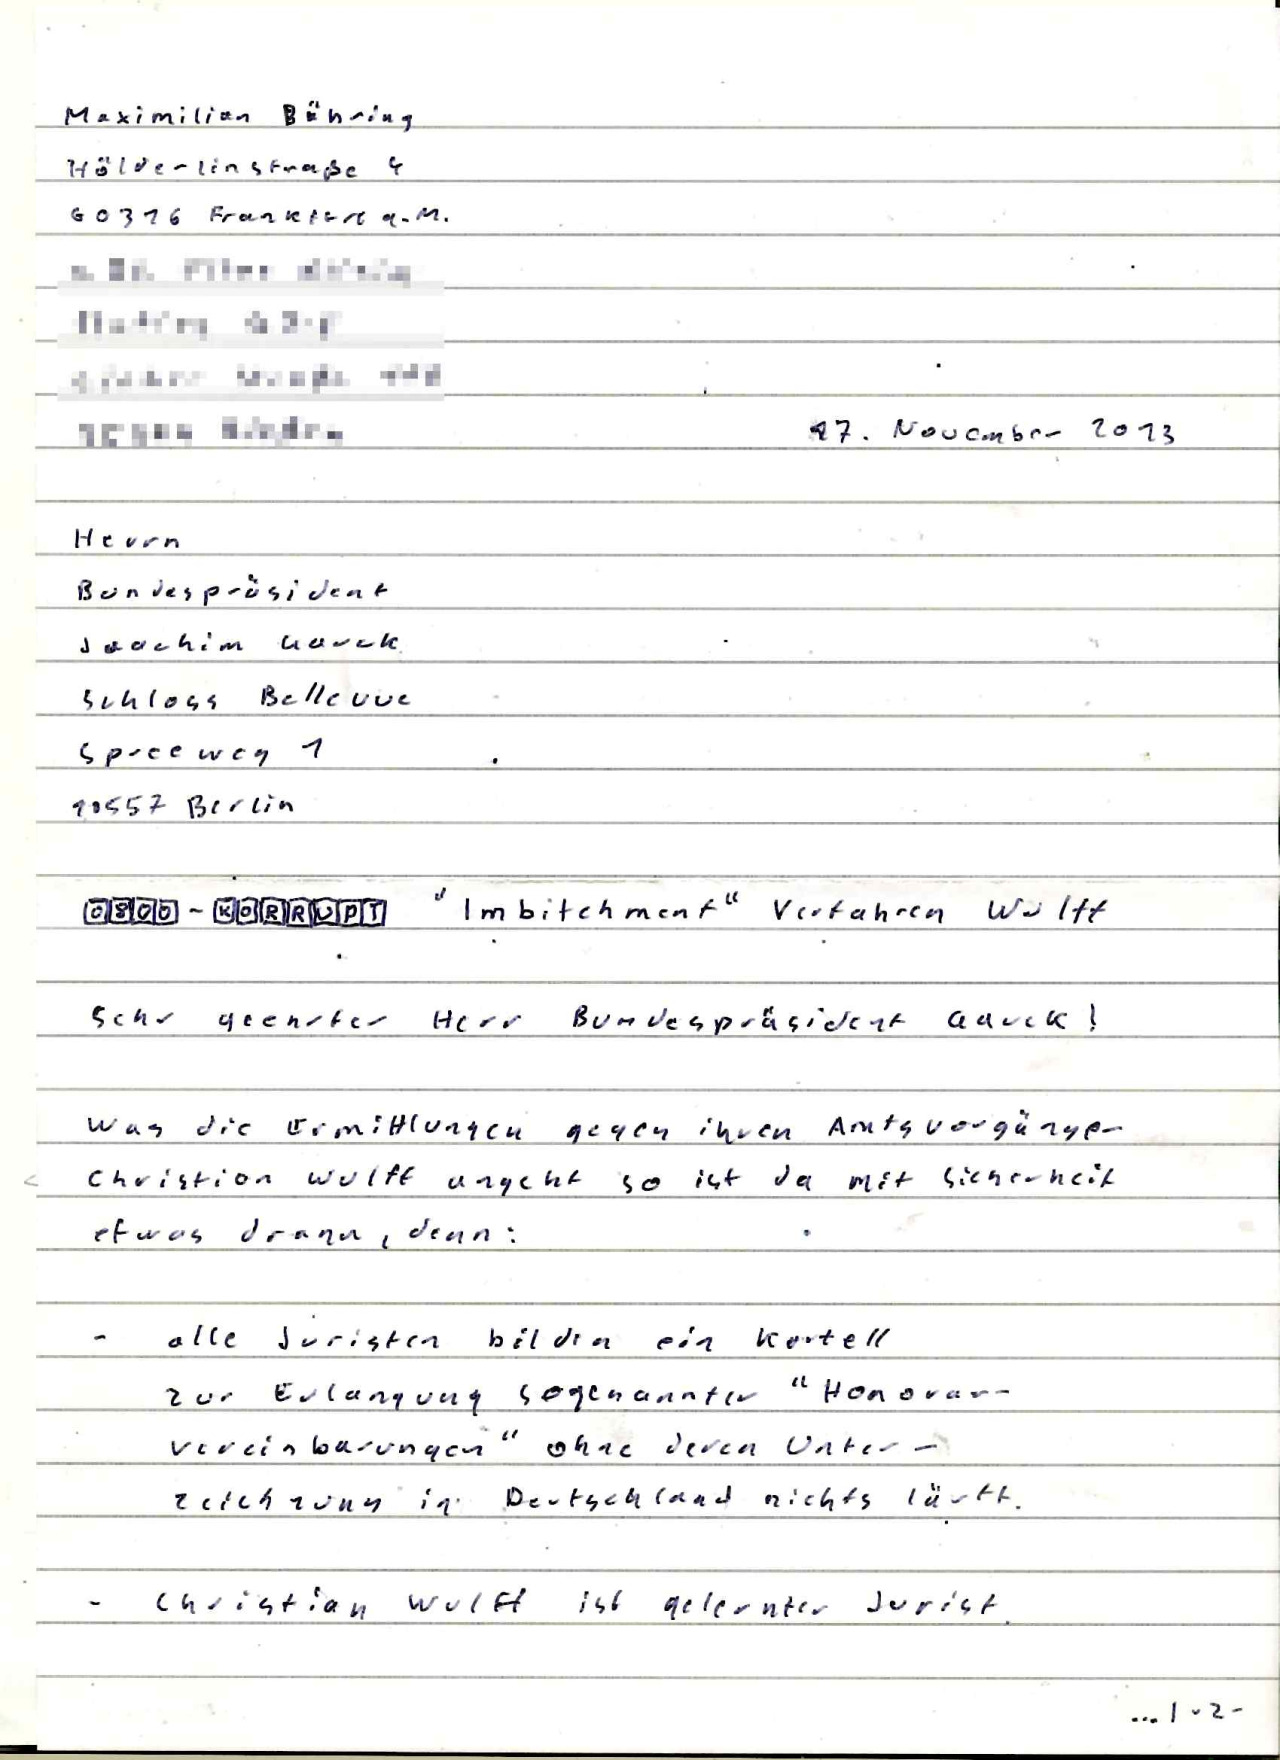 Maximilian Bähring
Hölderlinstraße 4
60316 Frankfurt a.M.
17. November 2013
Herrn
Bundespräsident
Joachim Gauck
Schloss Bellevue
Spreeweg 1
10557 Berlin
0800-KORRUPT "Imbitchment" Verfahren Wulff
Sehr geehrter Herr Bundespräsident Gauck!
Was die Ermittlungen gegen ihren Amtsvorgänger
Christian Wulff angeht so ist da mit Sicherheit
etwas drann, denn:
- alle Juristen bilden ein Kartell
zur Erlangung sogenannter "Honorar-
vereinbarungen" ohne deren Unter-
zeichnung in Deutschland nichts läuft.
- Christian Wulff ist gelernter Jurist.
... / -2-